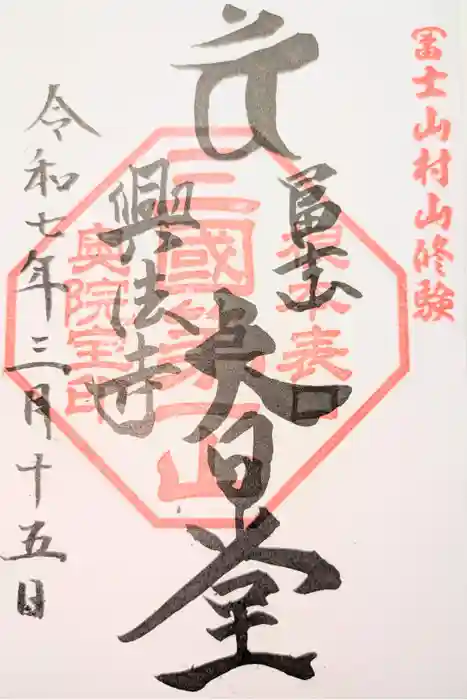 冨士山村山修験
冨士山
大日堂
興法寺
令和七年三月十五日
三國第一山
根本表口
奥院宝印